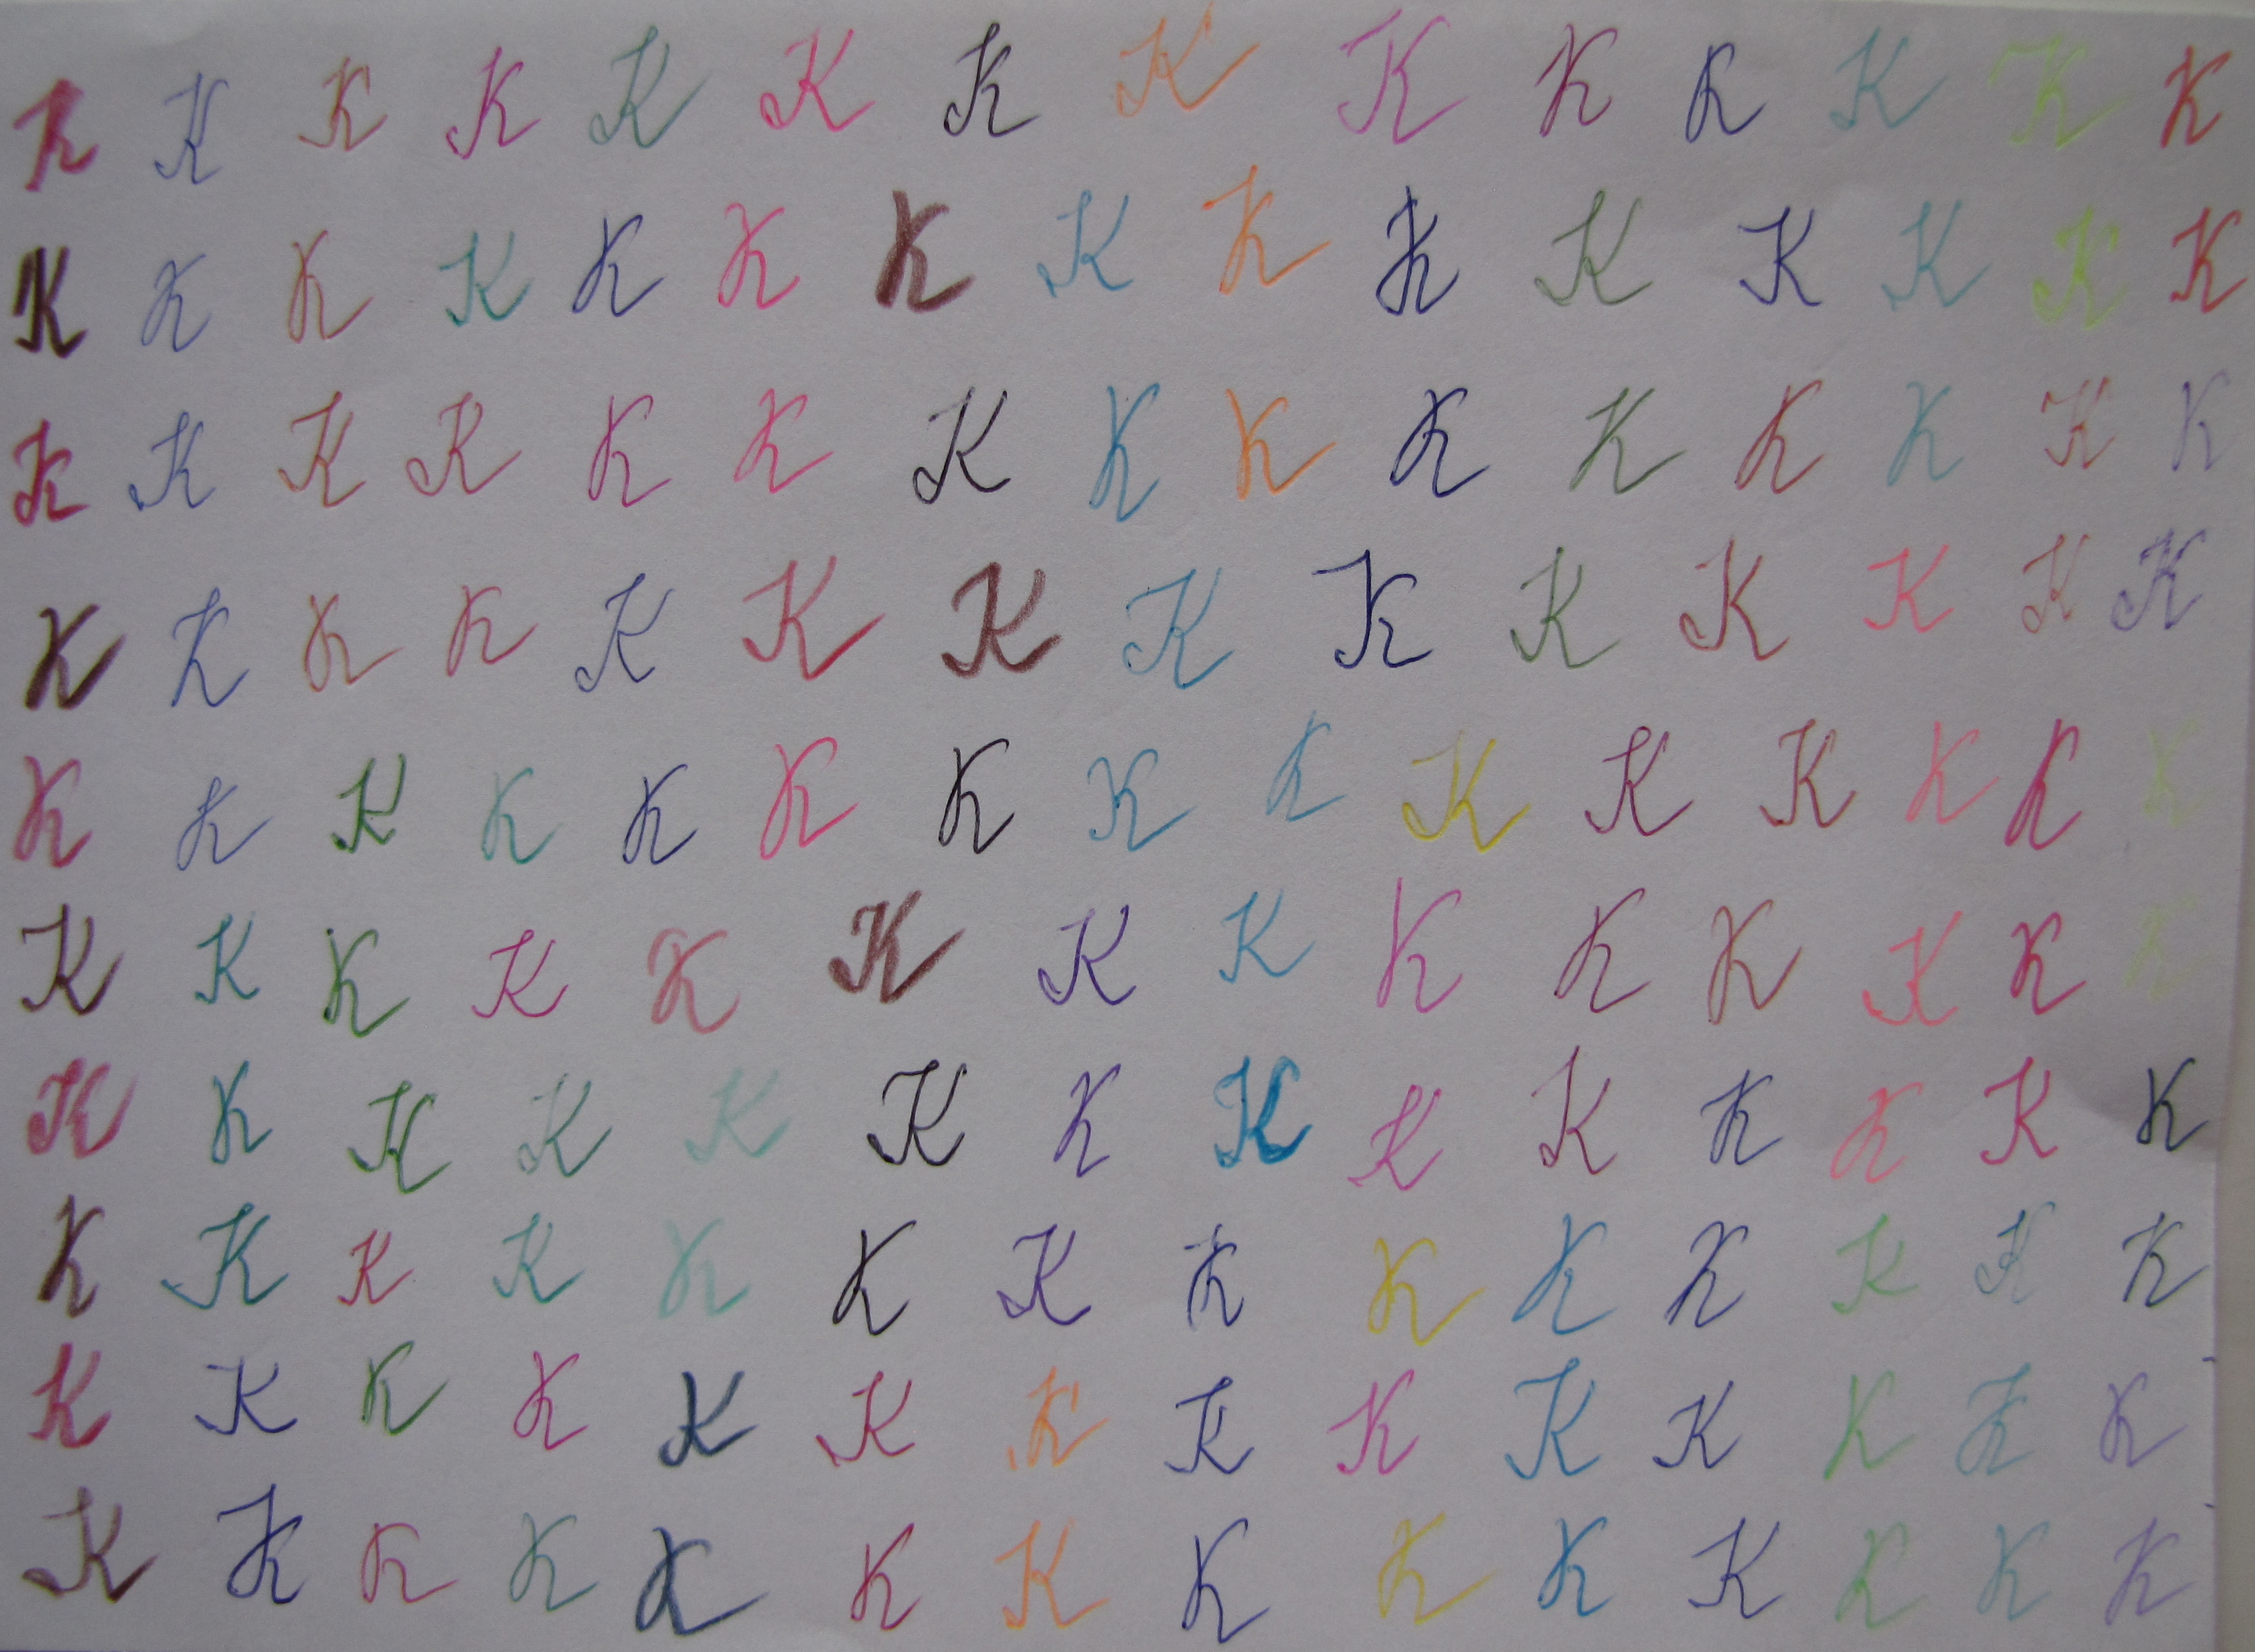 K K K K K K K K K K K K K K
K K K K K K K K K K K K K K K
K K K K K K K K K K K K K K K
K K K K K K K K K K K K K K
K K K K K K K K K K K K K K K
K K K K K K K K K K K K K K
K K K K K K K K K K K K K K
K K K K K K K K K K K K K K
K K K K K K K K K K K K K K
K K K K K K K K K K K K K K